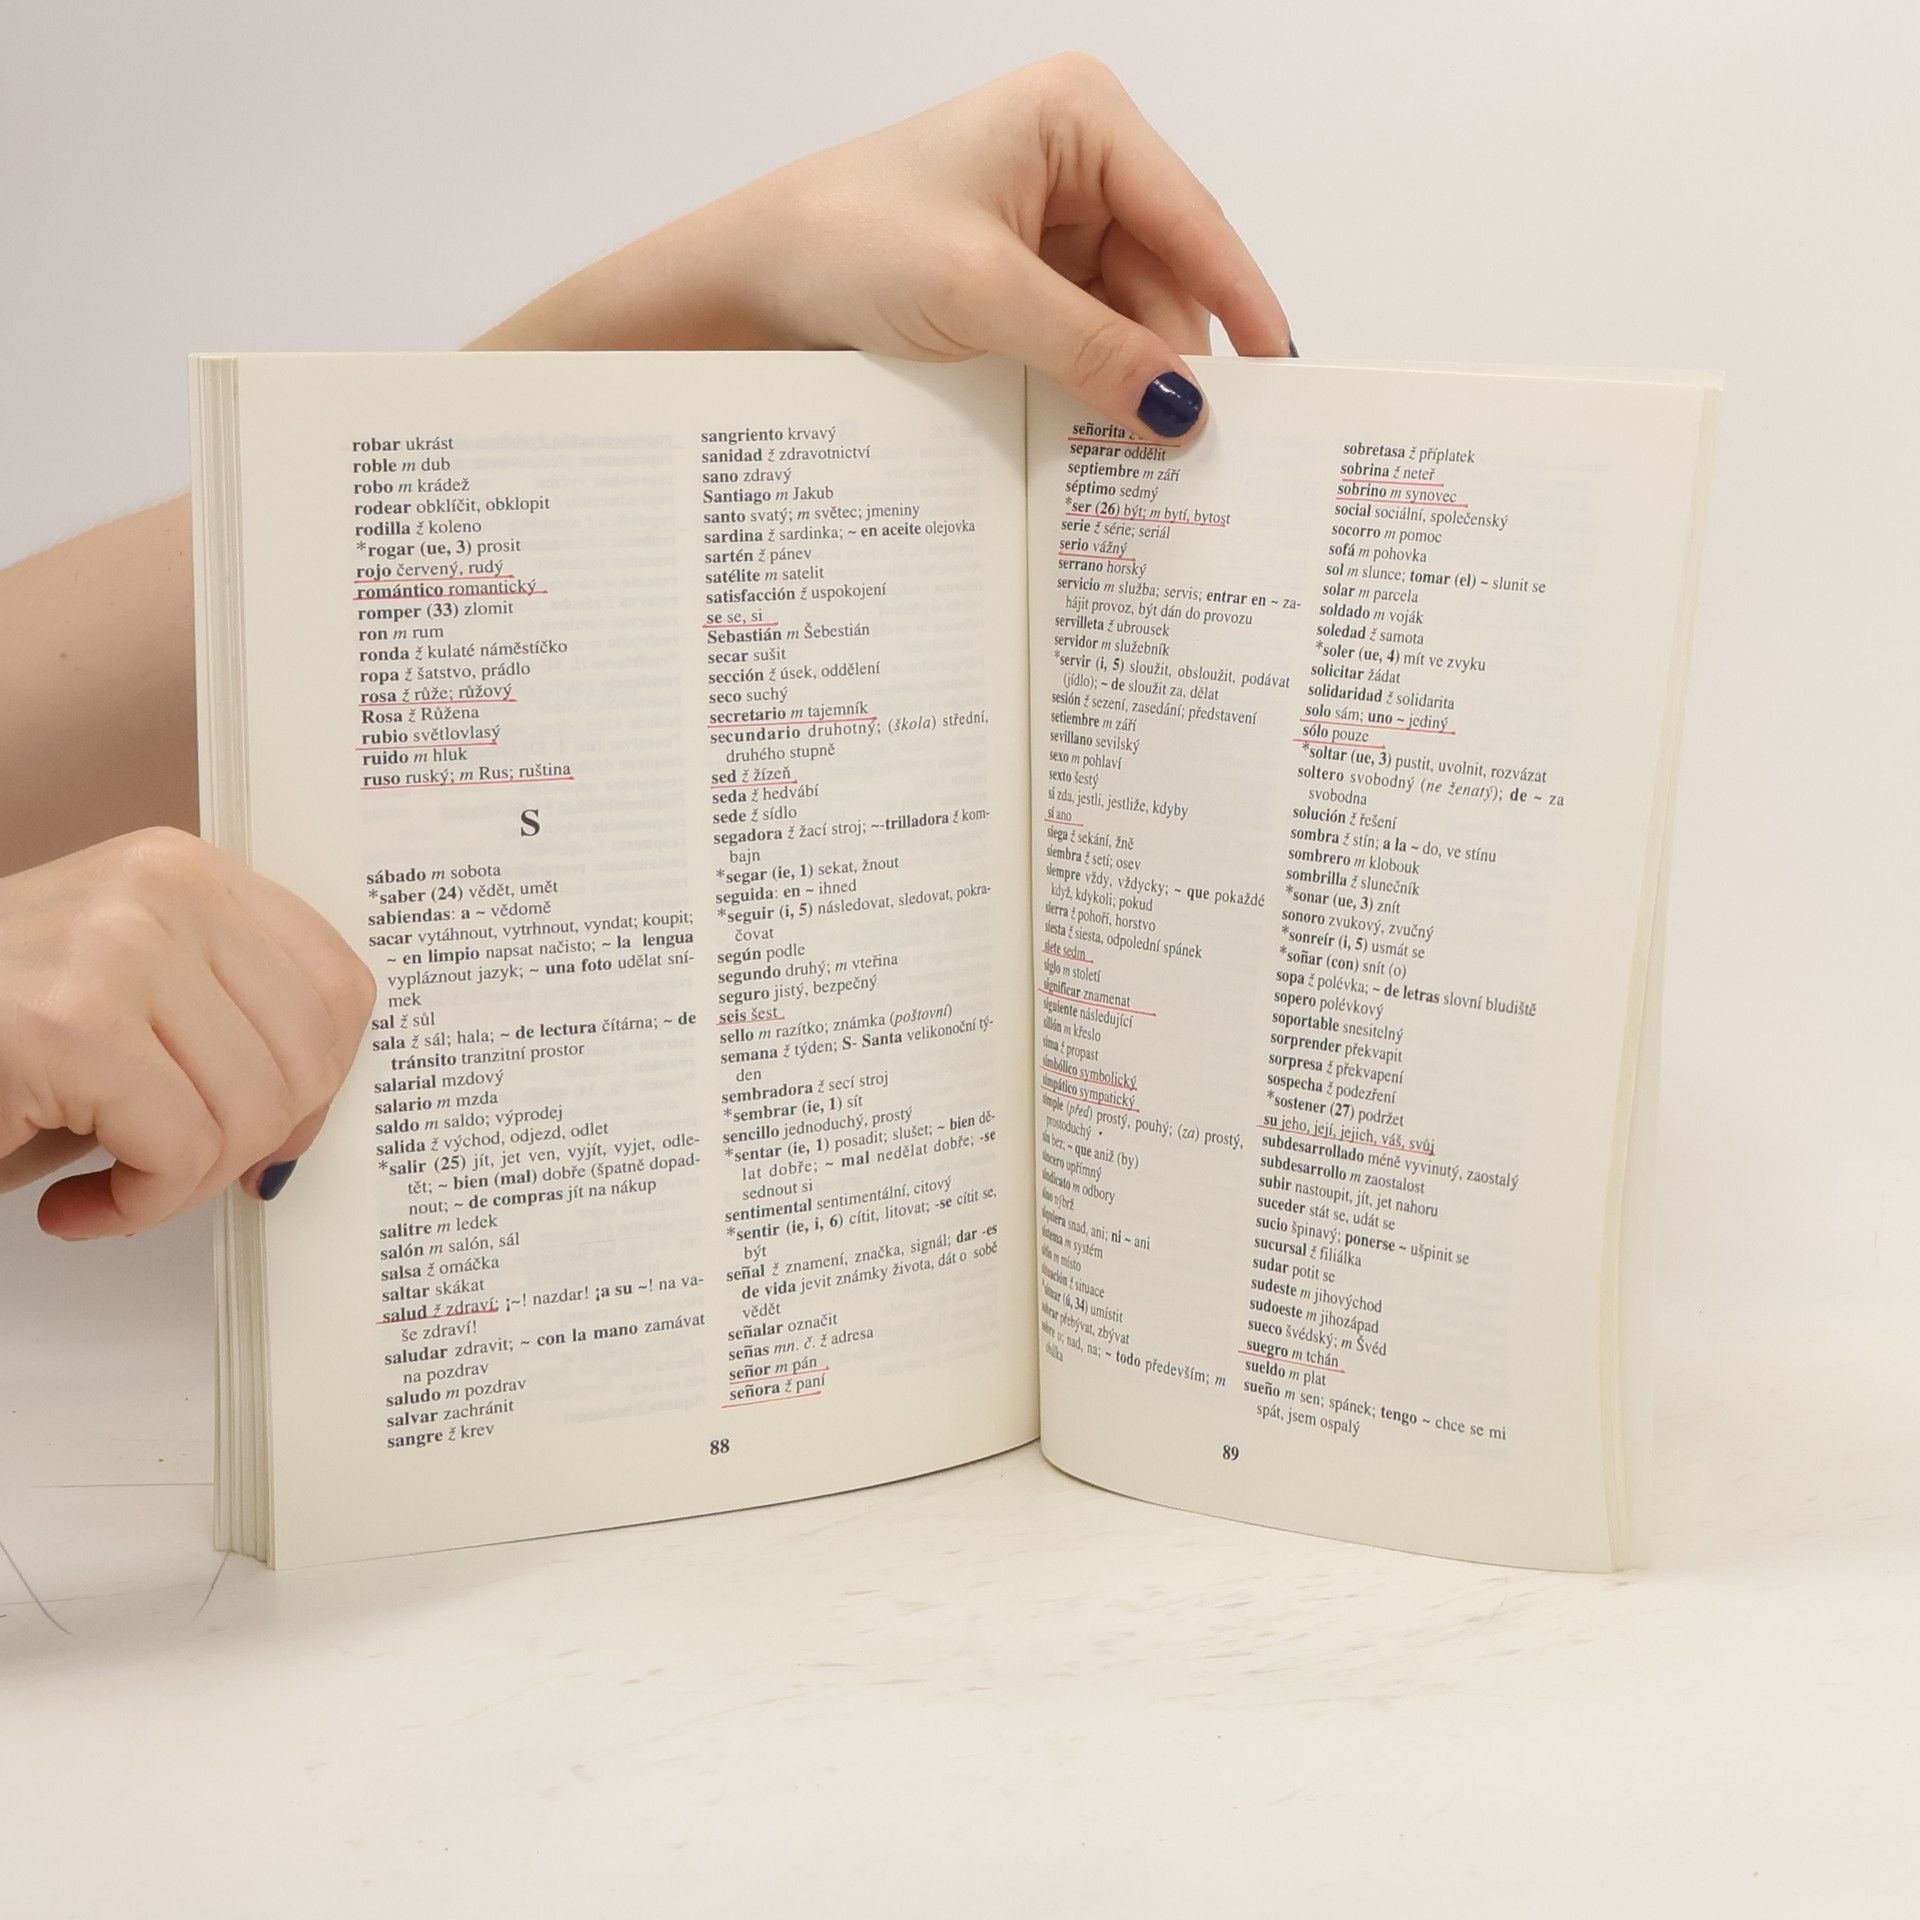 robar ukrást
roble m dub
robo m krádež
rodear obklíčit, obklopit
rodilla ž koleno
*rogar (ue, 3) prosit
rojo červený, rudý
romántico romantický
romper (33) zlomit
ron m rum
ronda ž kulaté náměstíčko
ropa ž šatstvo, prádlo
rosa ž růže; růžový
Rosa ž Růžena
rubio světlovlasý
ruido m hluk
ruso ruský; m Rus; ruština
S
sábado m sobota
*saber (24) vědět, umět
sabiendas: a ~ vědomě
sacar vytáhnout, vytrhnout, vyndat; koupit;
~ en limpio napsat načisto; ~ la lengua
vypláznout jazyk; ~ una foto udělat sní-
mek
sal ž sůl
sala ž sál; hala; ~ de lectura čítárna; ~ de
tránsito tranzitní prostor
salarial mzdový
salario m mzda
saldo m saldo; výprodej
salida ž východ, odjezd, odlet
*salir (25) jít, jet ven, vyjít, vyjet, odle-
tět; ~ bien (mal) dobře (špatně dopad-
nout; ~ de compras jít na nákup
salitre m ledek
salón m salón, sál
salsa ž omáčka
saltar skákat
salud ž zdraví; ¡~! nazdar! ¡a su ~! na va-
še zdraví!
saludar zdravit; ~ con la mano zamávat
na pozdrav
saludo m pozdrav
salvar zachránit
sangre ž krev
sangriento krvavý
sanidad ž zdravotnictví
sano zdravý
Santiago m Jakub
santo svatý; m světec; jmeniny
sardina ž sardinka; ~ en aceite olejovka
sartén ž pánev
satélite m satelit
satisfacción ž uspokojení
se se, si
Sebastián m Šebestián
secar sušit
sección ž úsek, oddělení
seco suchý
secretario m tajemník
secundario druhotný; (škola) střední,
druhého stupně
sed ž žízeň
seda ž hedvábí
sede ž sídlo
segadora ž žací stroj; ~-trilladora ž kom-
bajn
*segar (ie, 1) sekat, žnout
seguida: en ~ ihned
*seguir (i, 5) následovat, sledovat, pokra-
čovat
según podle
segundo druhý; m vteřina
seguro jistý, bezpečný
seis šest
sello m razítko; známka (poštovní)
semana ž týden; S- Santa velikonoční tý-
den
sembradora ž secí stroj
*sembrar (ie, 1) sít
sencillo jednoduchý, prostý
*sentar (ie, 1) posadit; slušet; ~ bien dě-
lat dobře; ~ mal nedělat dobře; -se
sednout si
sentimental sentimentální, citový
*sentir (ie, i, 6) cítit, litovat; -se cítit se,
být
señal ž znamení, značka, signál; dar -es
de vida jevit známky života, dát o sobě
vědět
señalar označit
señas mn. č. ž adresa
señor m pán
señora ž paní
88
señorita ž
separar oddělit
septiembre m září
séptimo sedmý
*ser (26) být; m bytí, bytost
serie ž série; seriál
serio vážný
serrano horský
servicio m služba; servis; entrar en ~ za-
hájit provoz, být dán do provozu
servilleta ž ubrousek
servidor m služebník
*servir (i, 5) sloužit, obsloužit, podávat
(jídlo); ~ de sloužit za, dělat
sesión ž sezení, zasedání; představení
setiembre m září
sevillano sevilský
sexo m pohlaví
sexto šestý
si zda, jestli, jestliže, kdyby
sí ano
siega ž sekání, žně
siembra ž setí; osev
siempre vždy, vždycky; ~ que pokaždé
když, kdykoli; pokud
sierra ž pohoří, horstvo
siesta ž siesta, odpolední spánek
siete sedm
siglo m století
significar znamenat
siguiente následující
sillón m křeslo
sima ž propast
simbólico symbolický
simpático sympatický
simple (před) prostý, pouhý; (za) prostý,
prostoduchý
sin bez; ~ que aniž (by)
sincero upřímný
sindicato m odbory
sino nýbrž
siquiera snad, ani; ni ~ ani
sistema m systém
sitio m místo
situación ž situace
*situar (ú, 34) umístit
sobrar přebývat, zbývat
sobre o; nad, na; ~ todo především; m
obálka
sobretasa ž příplatek
sobrina ž neteř
sobrino m synovec
social sociální, společenský
socorro m pomoc
sofá m pohovka
sol m slunce; tomar (el) ~ slunit se
solar m parcela
soldado m voják
soledad ž samota
*soler (ue, 4) mít ve zvyku
solicitar žádat
solidaridad ž solidarita
solo sám; uno ~ jediný
sólo pouze
*soltar (ue, 3) pustit, uvolnit, rozvázat
soltero svobodný (ne ženatý); de ~ za
svobodna
solución ž řešení
sombra ž stín; a la ~ do, ve stínu
sombrero m klobouk
sombrilla ž slunečník
*sonar (ue, 3) znít
sonoro zvukový, zvučný
*sonreír (i, 5) usmát se
*soñar (con) snít (o)
sopa ž polévka; ~ de letras slovní bludiště
sopero polévkový
soportable snesitelný
sorprender překvapit
sorpresa ž překvapení
sospecha ž podezření
*sostener (27) podržet
su jeho, její, jejich, váš, svůj
subdesarrollado méně vyvinutý, zaostalý
subdesarrollo m zaostalost
subir nastoupit, jít, jet nahoru
suceder stát se, udát se
sucio špinavý; ponerse ~ ušpinit se
sucursal ž filiálka
sudar potit se
sudeste m jihovýchod
sudoeste m jihozápad
sueco švédský; m Švéd
suegro m tchán
sueldo m plat
sueño m sen; spánek; tengo ~ chce se mi
spát, jsem ospalý
89